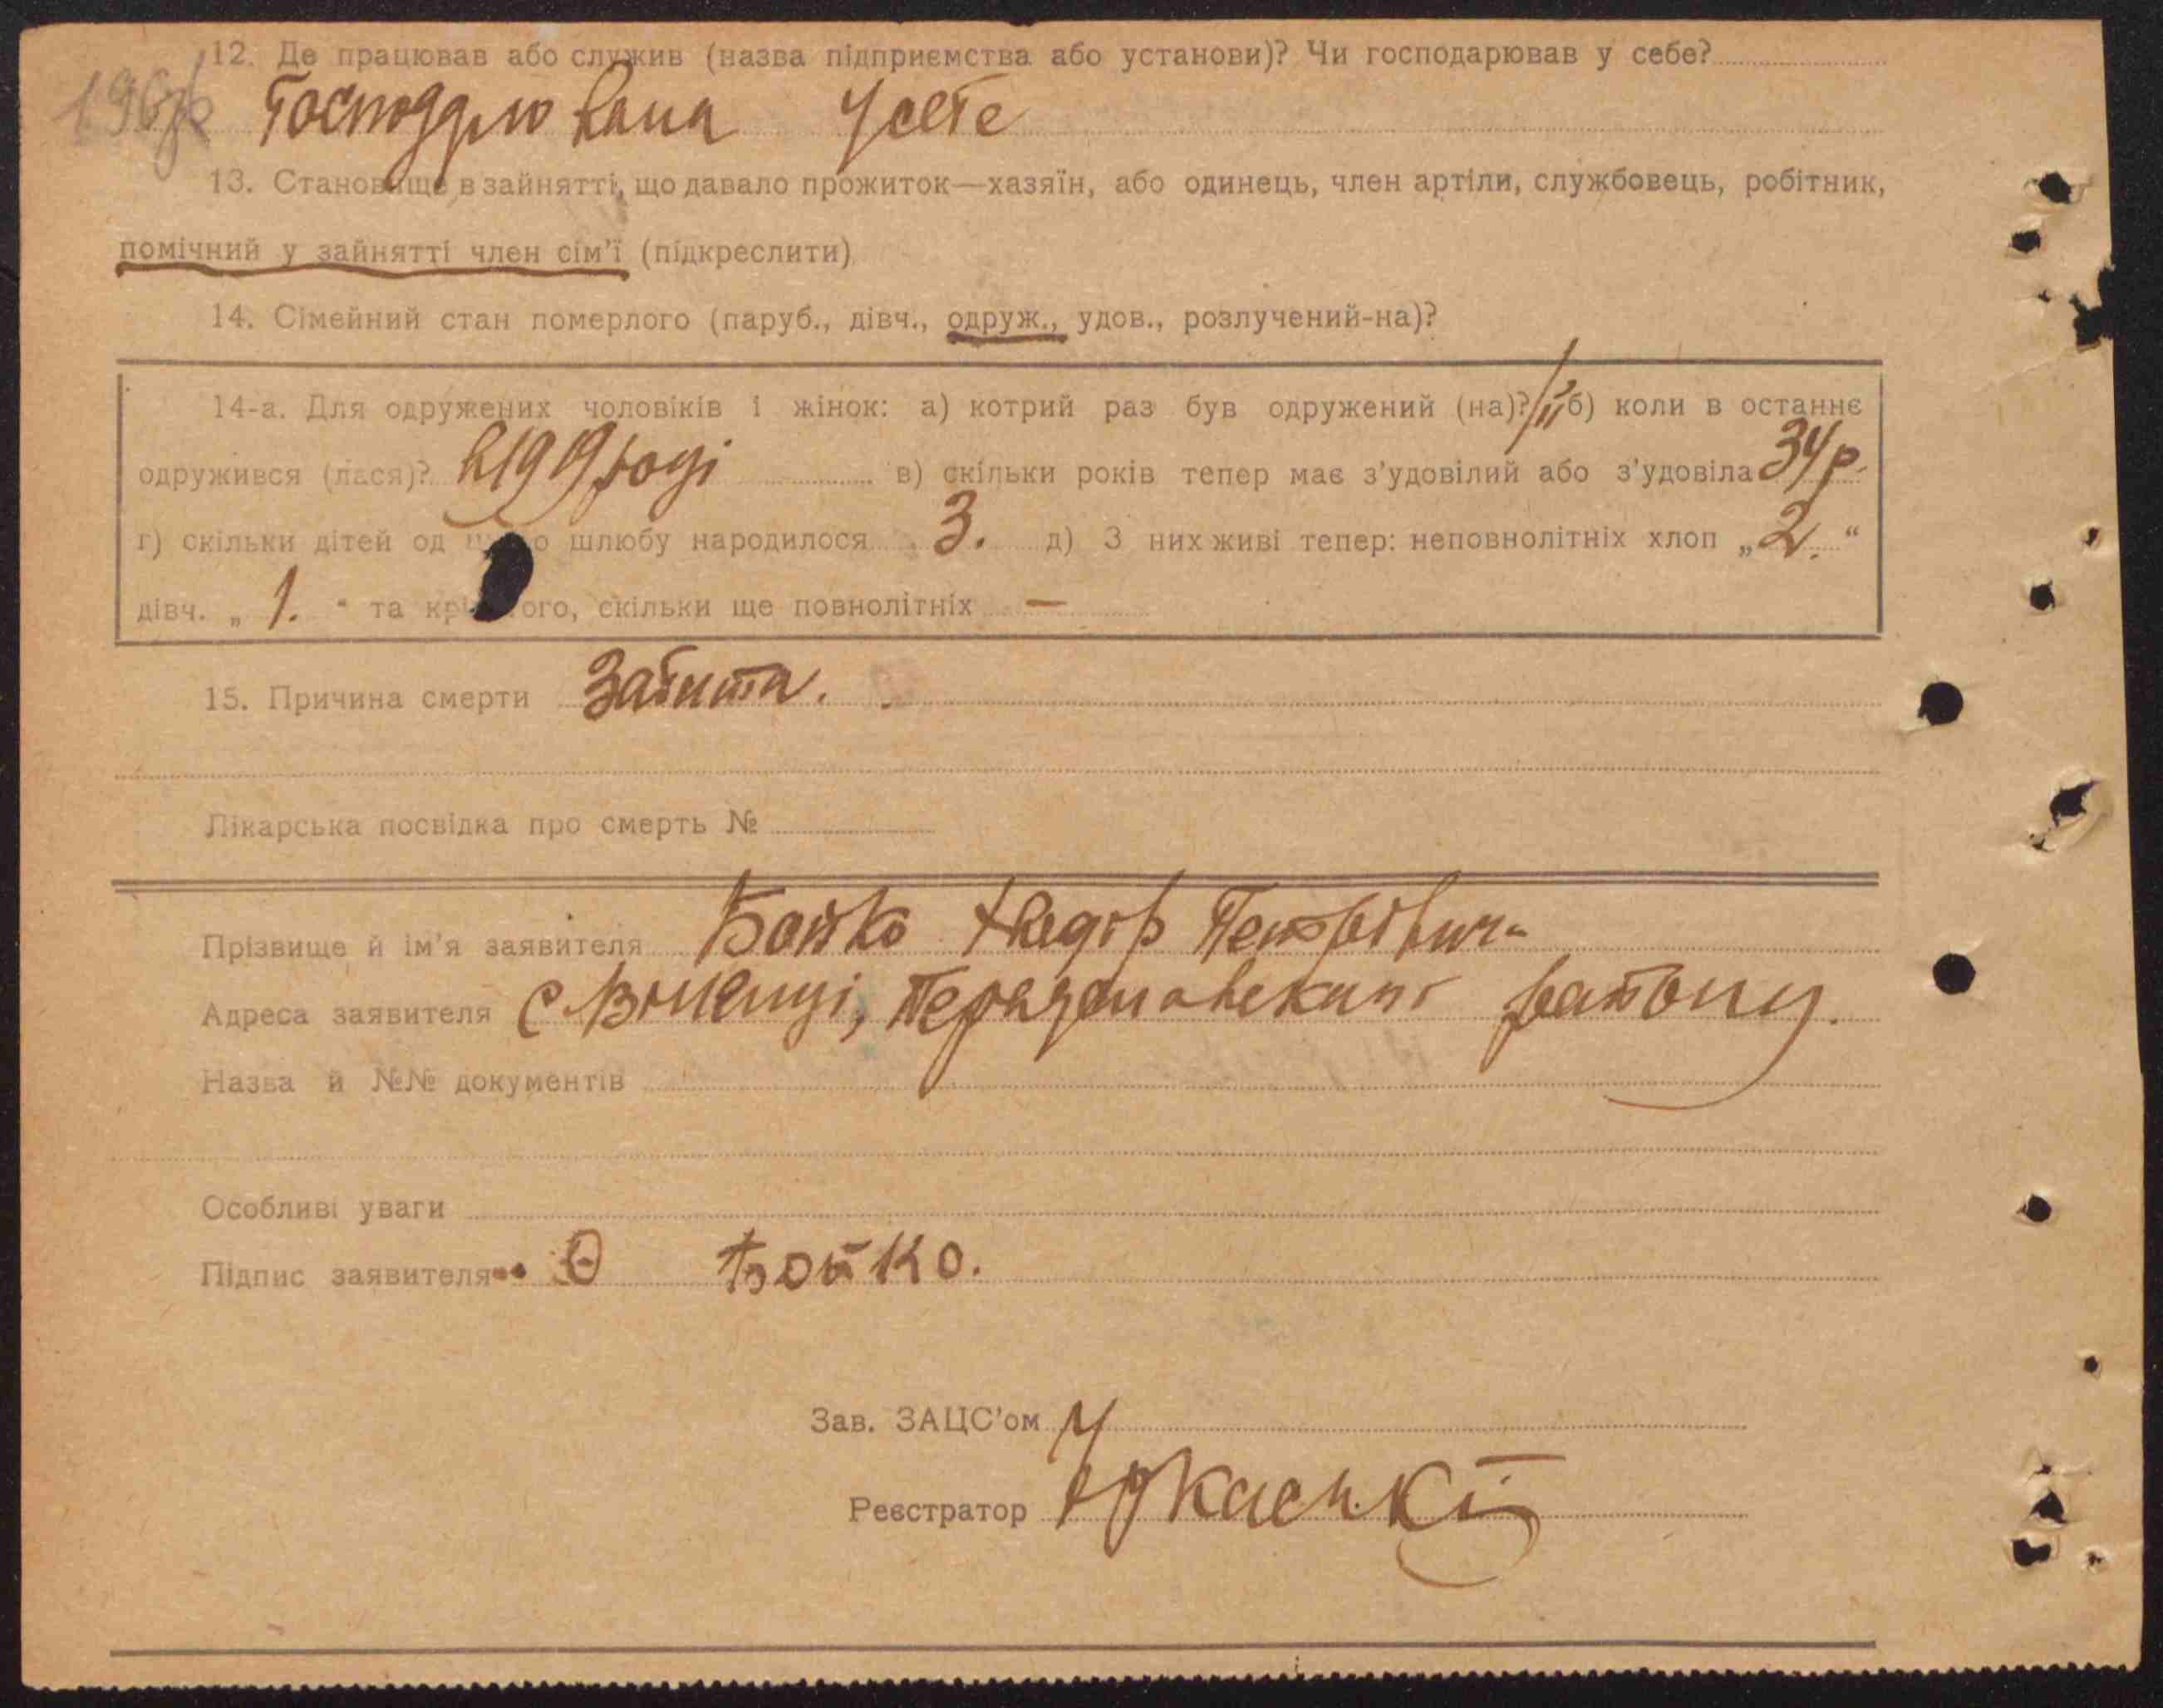 12. Де працював або служив (назва підприємства або установи)? Чи господарював у себе?
Господарювала у себе
13. Становище в зайнятті, що давало прожиток—хазяїн, або одинець, член артіли, службовець, робітник,
помічний у зайнятті член сім'ї (підкреслити)
14. Сімейний стан померлого (паруб., дівч., одруж., удов., розлучений-на)?
14-а. Для одружених чоловіків і жінок: а) котрий раз був одружений (на)? II б) коли в останнє
одружився (лася)? в 1919 році в) скільки років тепер має з'удовілий або з'удовіла 34 р.
г) скільки дітей од шлюбу народилося 3. д) З них живі тепер: неповнолітніх хлоп „2.“
дівч. „1.“ та ого, скільки ще повнолітніх —
15. Причина смерти Забита.
Лікарська посвідка про смерть №
Прізвище й ім'я заявителя Бойко Федір Петрович
Адреса заявителя с району.
Назва й №№ документів
Особливі уваги
Підпис заявителя Ѳ Бойко.
Зав. ЗАЦС'ом
Реєстратор